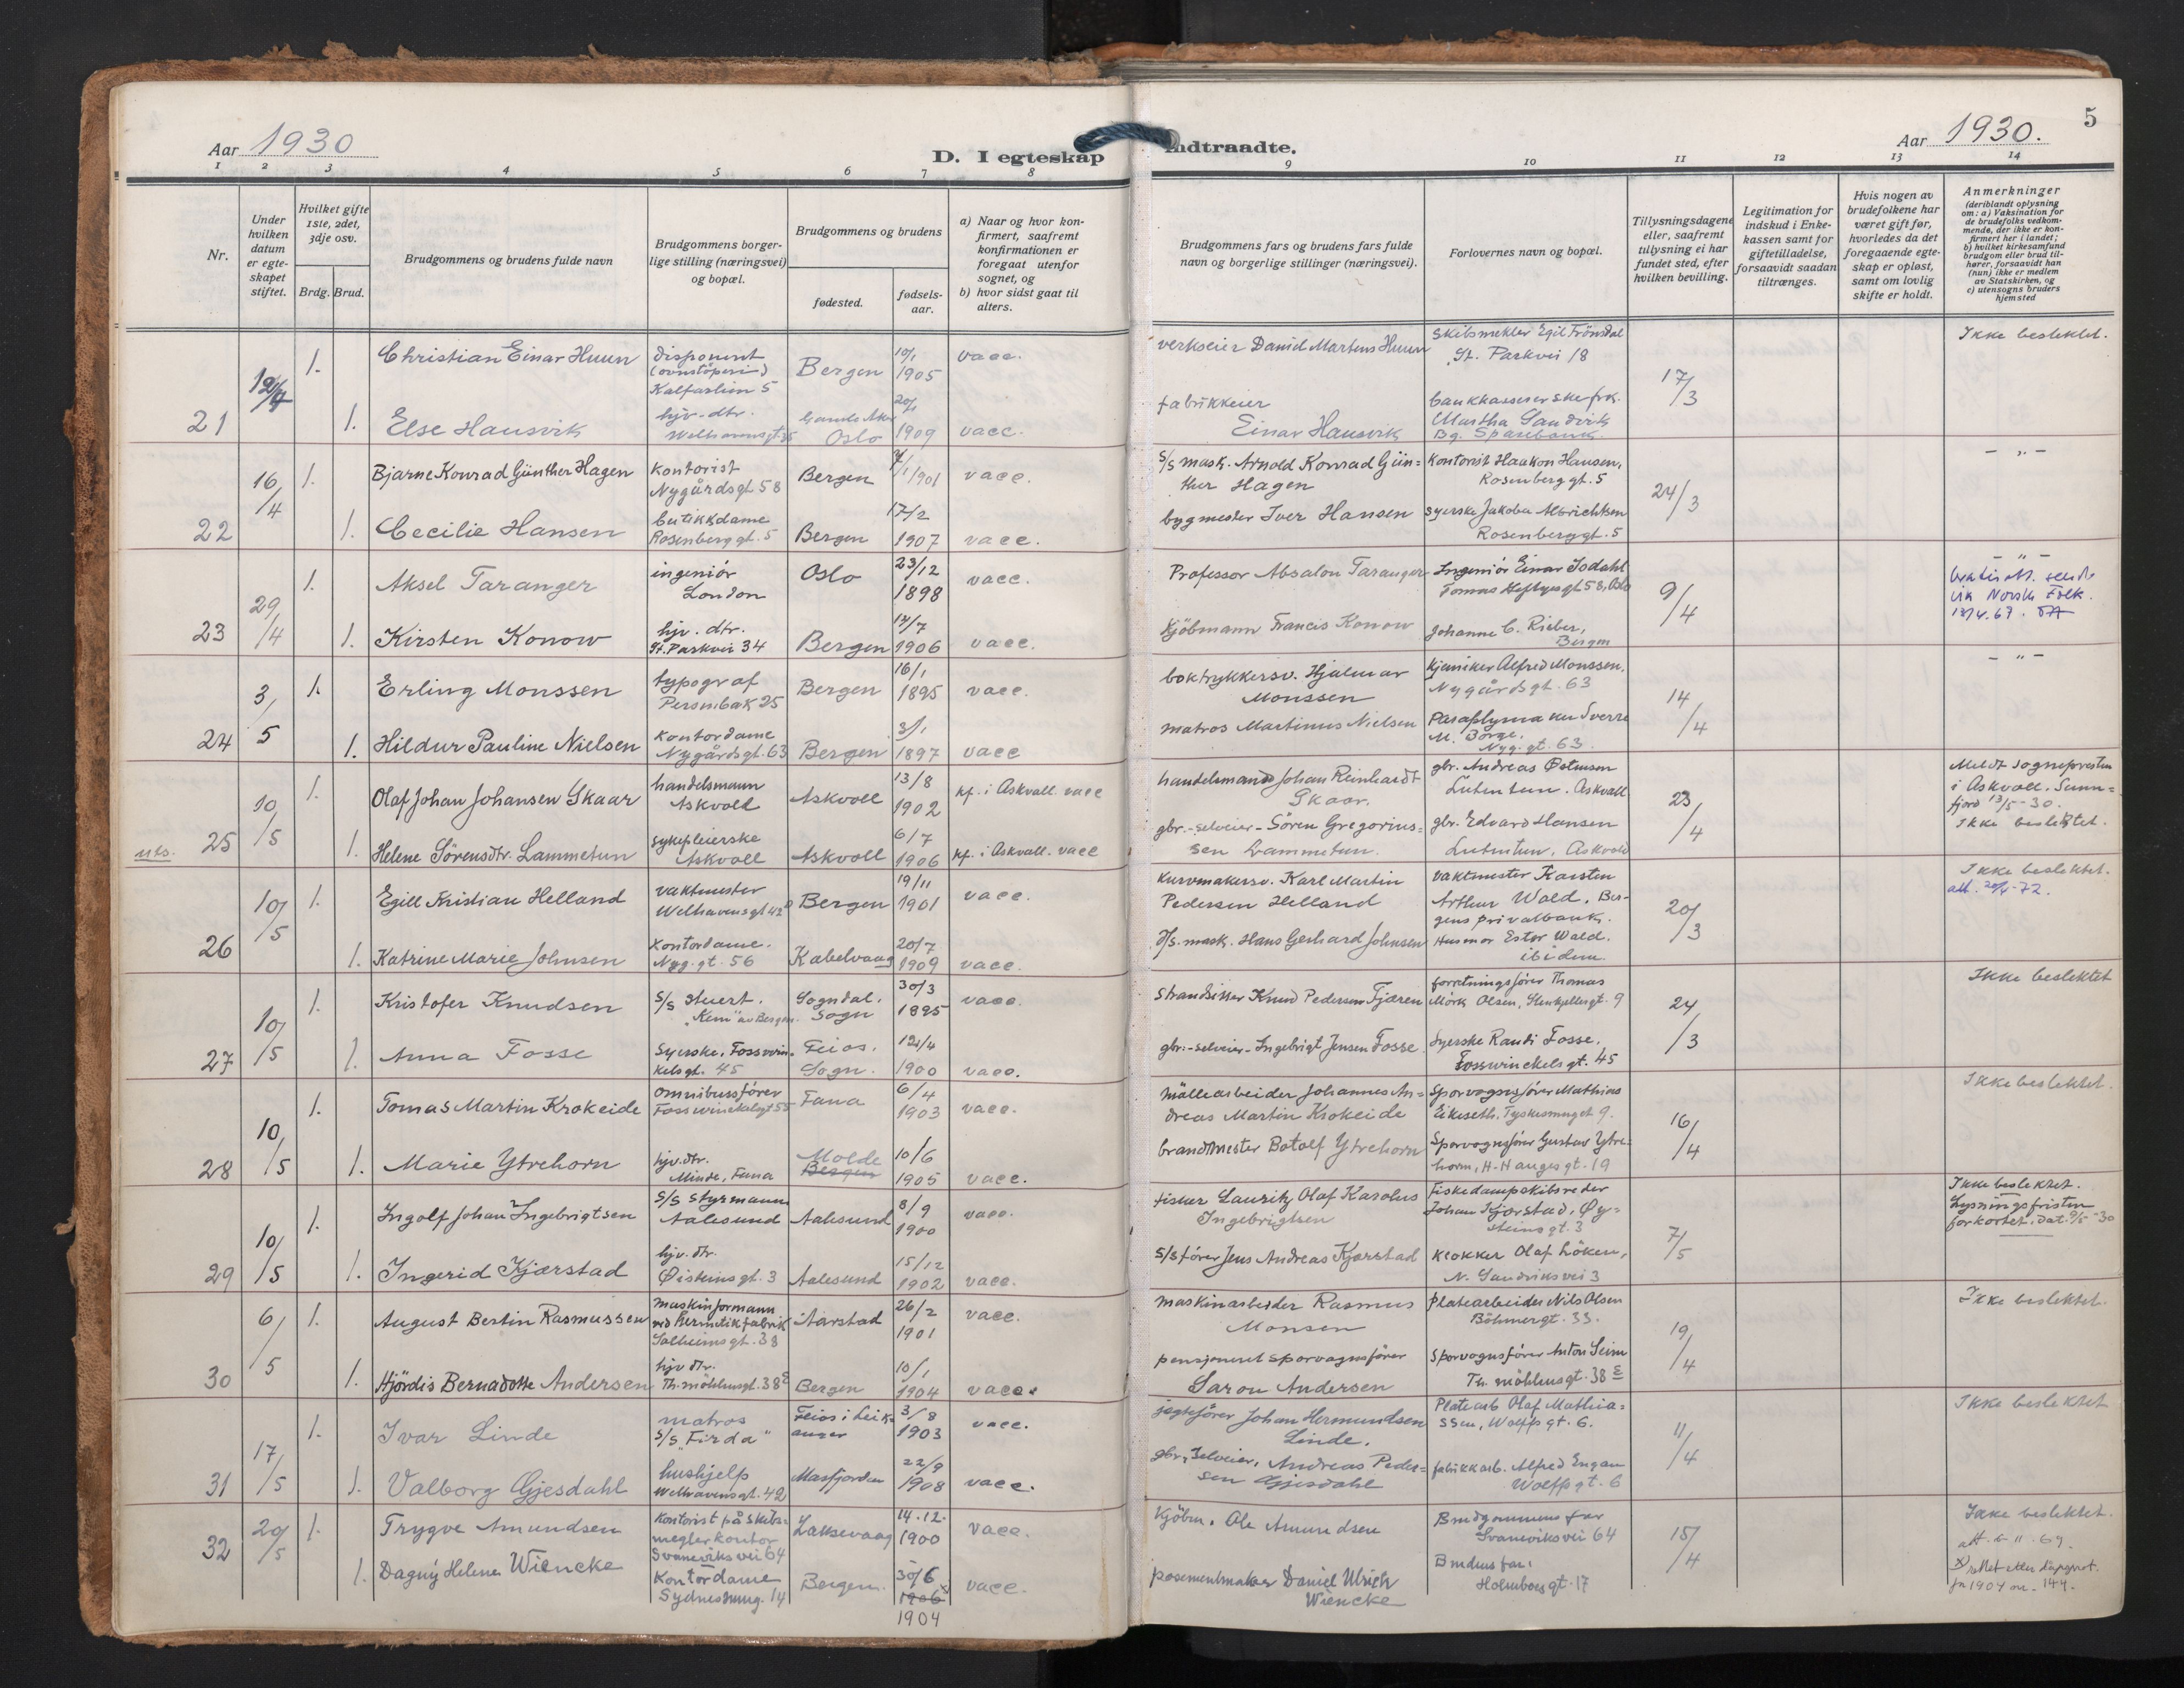 Aar 1930
D. I egteskap indtraadte.
Aar 1930.
5
1 2 3 4 5 6 7 8 9 10 11 12 13 14
Nr.
Under hvilken datum er egteskapet stiftet.
Hvilket gifte 1ste, 2det, 3dje osv.
Brdg. Brud.
Brudgommens og brudens fulde navn
Brudgommens borgerlige stilling (næringsvei) og bopæl.
Brudgommens og brudens
fødested.
fødselsaar.
a) Naar og hvor konfirmert, saafremt konfirmationen er foregaat utenfor sognet, og
b) hvor sidst gaat til alters.
Brudgommens fars og brudens fars fulde navn og borgerlige stillinger (næringsvei).
Forlovernes navn og bopæl.
Tillysningsdagene eller, saafremt tillysning ei har fundet sted, efter hvilken bevilling.
Legitimation for indskud i Enkekassen samt for giftetilladelse, forsaavidt saadan tiltrænges.
Hvis nogen av brudefolkene har været gift før, hvorledes da det foregaaende egteskap er opløst, samt om lovlig skifte er holdt.
Anmerkninger
(deriblandt oplysning om: a) Vaksination for de brudefolks vedkommende, der ikke er konfirmert her i landet; b) hvilket kirkesamfund brudgom eller brud tilhører, forsaavidt han (hun) ikke er medlem av Statskirken, og c) utensogns bruders hjemsted
21 12/4 1. Christian Einar Huun disponent (ovnstöperi) Kalfarlien 5 Bergen 10/1 1905 vacc. verkseier Daniel Martens Huun Skibsmekler Egil Frönsdal St. Parkvei 18 17/3 Ikke beslektet.
1. Else Hausvik hjv. dtr. Welhavensgt. 35 Oslo 20/1 1909 vacc. fabrikkeier Einar Hausvik bankkassererske frk. Martha Sandvik Bg. Sparebank.
22 16/4 1. Bjarne Konrad Günther Hagen kontorist Nygårdsgt 58 Bergen 4/1 1901 vacc. S/S mask. Arnold Konrad Günther Hagen Kontorist Haakon Hansen, Rosenberggt. 5 24/3 - " -
1. Cecilie Hansen butikkdame Rosenberggt. 5 Bergen 17/2 1907 vacc. bygmester Iver Hansen syerske Jakoba Albrichtsen Rosenberggt. 5
23 29/4 1. Aksel Taranger ingeniör London Oslo 23/12 1898 vacc. Professor Absalon Taranger Ingeniör Einar Isdahl Tomas Heftyes gt 58, Oslo 9/4 - " -
1. Kirsten Konow hjv. dtr. St. Parkvei 34 Bergen 14/7 1906 vacc. Kjöbmann Francis Konow Johanne C. Rieber, Bergen
via Norsk Folk.
24 3/5 1. Erling Monssen typograf Bergen 16/1 1895 vacc. boktrykkersv. Hjalmar Monssen Kjemiker Alfred Monssen, Nygårdsgt. 63 14/4 - " -
1. Hildur Pauline Nielsen kontordame Nygårdsgt. 63 Bergen 3/1 1897 vacc matros Martinus Nielsen Paraplymaker Sverre M. Börge, Nyg. gt. 63
25 10/5 1. Olaf Johan Johansen Skaar handelsmann Askvoll Askvoll 13/8 1902 kf. i Askvoll. vacc handelsmand Johan Reinhardt Skaar. gbr. Andreas Østenson Lutentun. Askvoll 23/4 Meldt sognepresten i Askvoll, Sunnfjord 13/5-30. Ikke beslektet.
uts. 1. Helene Sörensdtr. Lammetun sykepleierske Askvoll Askvoll 6/7 1906 kf. i Askvoll. vacc gbr.-selveier-Sören Gregoriussen Lammetun. gbr. Edvard Hansen Lutentun, Askvoll
26 10/5 1. Egill Kristian Helland vaktmester Welhavensgt 42 Bergen 19/11 1901 vacc. Kurvmakersv. Karl Martin Pedersen Helland vaktmester Karsten Arthur Wald, Bergens privatbank. 20/3 Ikke beslektet.
1. Katrine Marie Johnsen Kontordame. Nyg. gt. 56 Kabelvaag 20/7 1909 vacc. S/S. mask. Hans Gerhard Johnsen Husmor Ester Wald. ibidem.
27 10/5 1. Kristofer Knudsen S/S stuert. "Kem" av Bergen. Sogndal. Sogn 30/3 1895 vacc. Strandsitter Knud Pedersen Fjæren forretningsförer Thomas Mörk Olsen, Stenkjellergt. 9 24/3 Ikke beslektet
1. Anna Fosse Syerske, Fosswinkelsgt. 45 Feios. Sogn. 12/4 1900 vacc. gbr.-selveier-Ingebrigt Jensen Fosse Syerske Randi Fosse. Fosswinckelsgt. 45
28 10/5 1. Tomas Martin Krokeide omnibussförer Fosswinckelsgt 55 Fana 6/4 1903 vacc. Möllearbeider Johannes Andreas Martin Krokeide Sporvognsförer Matthias Eikeseth, Tyskesmuget 9. 16/4 Ikke beslektet.
1. Marie Ytrehorn hjv. dtr. Minde, Fana Molde Bergen 10/6 1905 vacc. brandmester Botolf Ytrehorn Sporvognsförer Gustav Ytrehorn, H-Haugesgt. 19
29 10/5 1. Ingolf Johan Ingebrigtsen S/S Styrmann Aalesund Aalesund 8/9 1900 vacc. fisker Lauritz Olaf Karolus Ingebrigtsen Fiskedampskibsreder Johan Kjorstad, Øysteinsgt. 3 7/5 Ikke beslektet. Lysningsfristen forkortet, dat. 9/5-30
1. Ingerid Kjærstad hjv. dtr. Øisteinsgt. 3 Aalesund 15/12 1902 vacc. S/S förer Jens Andreas Kjærstad Klokker Olaf Löken, N. Sandviksvei 3
30 6/5 1. August Bertin Rasmussen Maskinformann ved Hermetikfabrik Solheimsgt. 38 Aarstad 26/2 1901 vacc. Maskinarbeider Rasmus Monsen Platearbeider Nils Olsen Böhmergt. 33. 19/4 Ikke beslektet.
1. Hjördis Bernadotte Andersen hjv dtr. Th. möhlensgt. 38 E Bergen 10/1 1904 vacc. pensjonert sporvognsförer Saron Andersen Sporvognsförer Anton Seim Th. möhlensgt. 38 E
31 17/5 1. Ivar Linde matros S/S "Firda" Feios i Leikanger 3/8 1903 vacc. jagteförer Johan Hermundsen Linde. Platearb Olaf Mathiassen, Wolffsgt. 6. 11/4 Ikke beslektet
1. Valborg Gjesdahl hushjelp Welhavensgt. 42 Masfjorden 22/9 1908 vacc. gbr. Selveier, Andreas Pedersen Gjesdahl fabrikkarb. Alfred Engan Wolffsgt. 6
32 20/5 1. Trygve Amundsen Kontorist på Skibsmeglerkontor Svaneviksvei 64 Laksevaag 14.12. 1900 vacc. Kjöbm. Ole Amundsen Brudgommens far Svaneviksvei 64 15/4 Ikke beslektet.
1. Dagny Helene Wiencke Kontordame Sydnessmug. 14 Bergen. 30/6 1906 x 1904 vacc. posementmaker Daniel Ulrich Wiencke Brudens far: Holbergsgt. 17